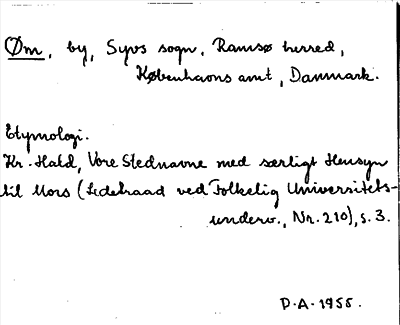 Øm, by, Syvs sogn, Ramsø herred,
Københavns amt, Danmark.
Etymologi.
Kr. Hald, Vore Stednavne med særligt Hensyn
til Mors (Ledetraad ved Folkelig Universitets-
underv., Nr. 210), s. 3.
P.A. 1955.